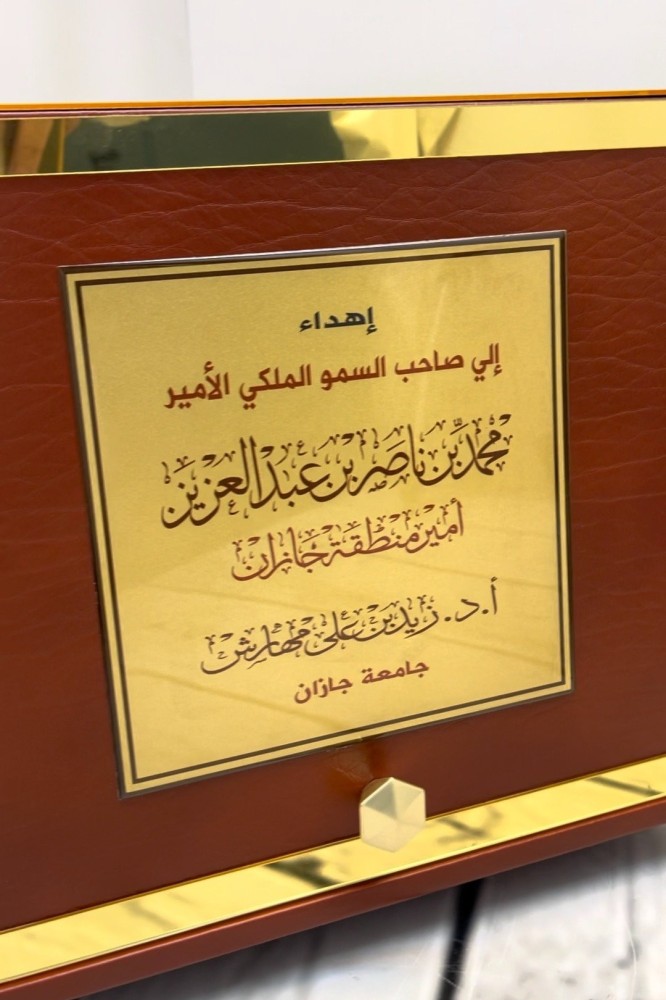 إهداء
إلي صاحب السمو الملكي الأمير
محمد بن ناصر بن عبد العزيز
أمير منطقة جازان
أ.د. زيد بن علي مهارش
جامعة جازان